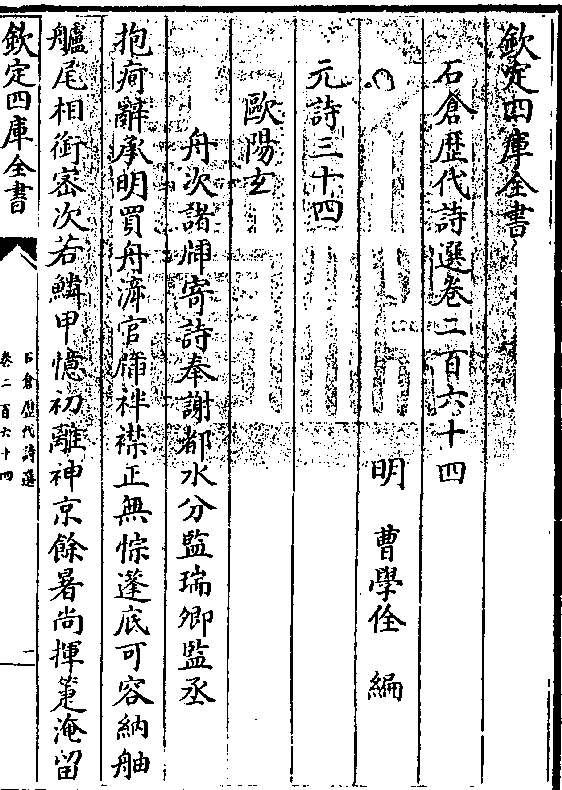 欽定四庫全書
石倉歴代詩選卷二百六十四
明 曹學佺 編
元詩三十四
歐陽玄
舟次諸牐寄詩奉謝都水分監瑞卿監丞
抱疴辭承明買舟官牐袢襟正無悰蓬底可容納舳
艫尾相銜密次若鱗甲憶初離神京餘暑尚揮箑淹留
欽定四庫全書
石倉歴代詩選
卷二百六十四
一